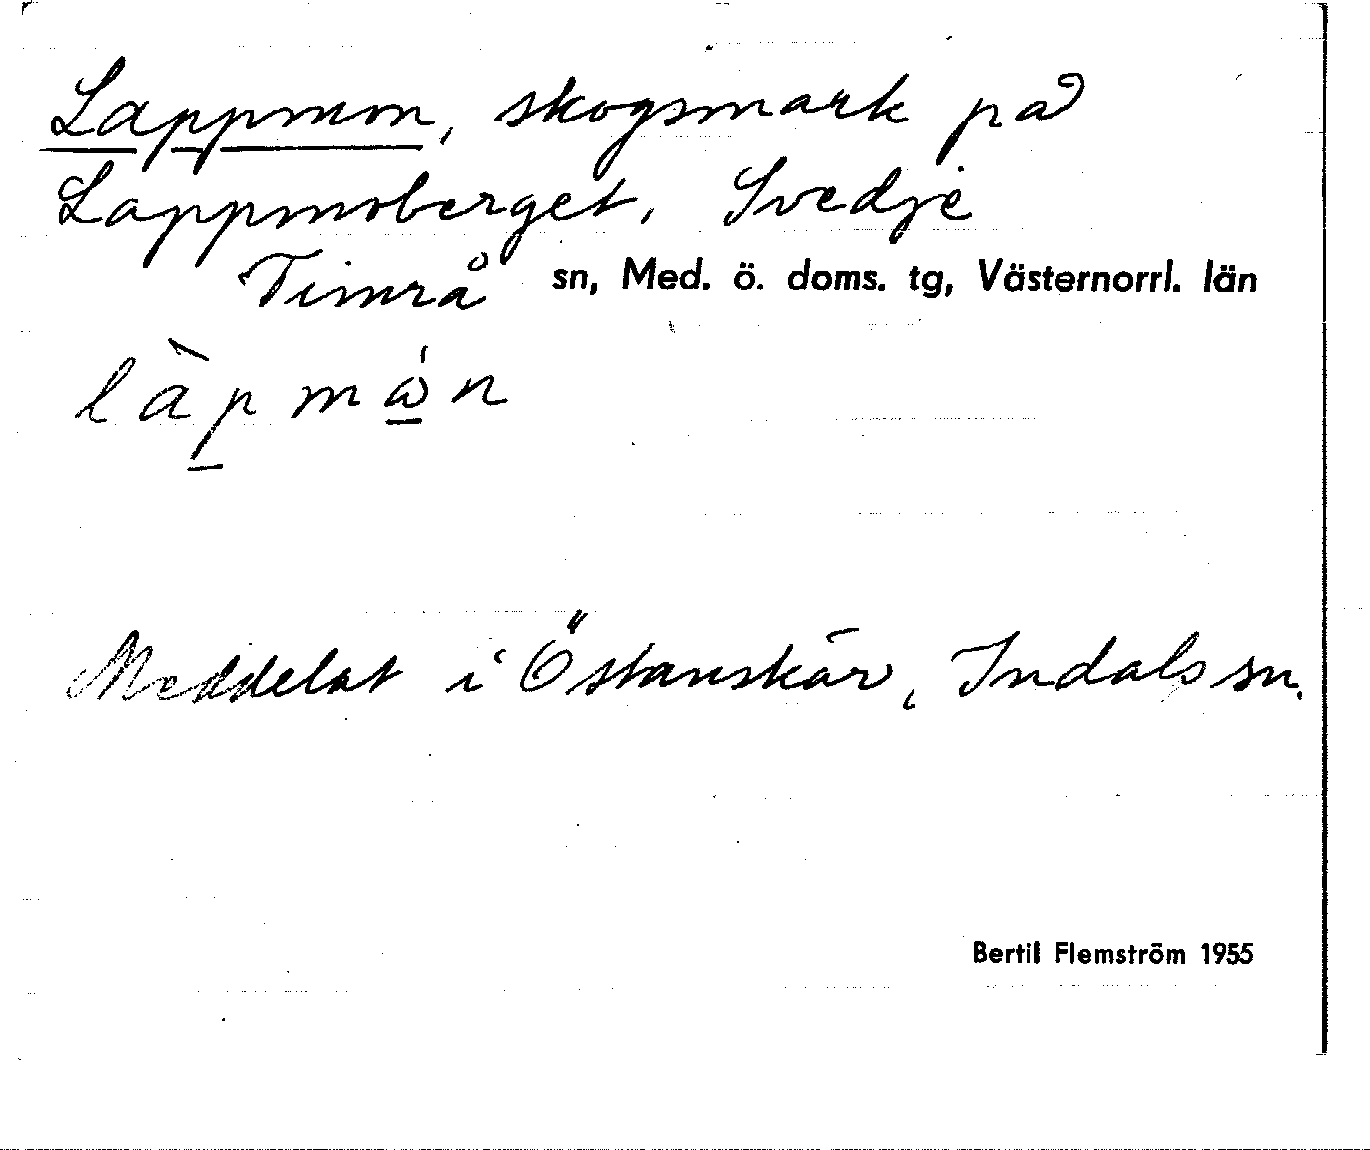 Lappmon, skogsmark på
Lappmoberget, Svedje
Timrå sn, Med. ö. doms. tg, Västernorrl. län
Meddelat i Östanskär, Indals sn.
Bertil Flemström 1955